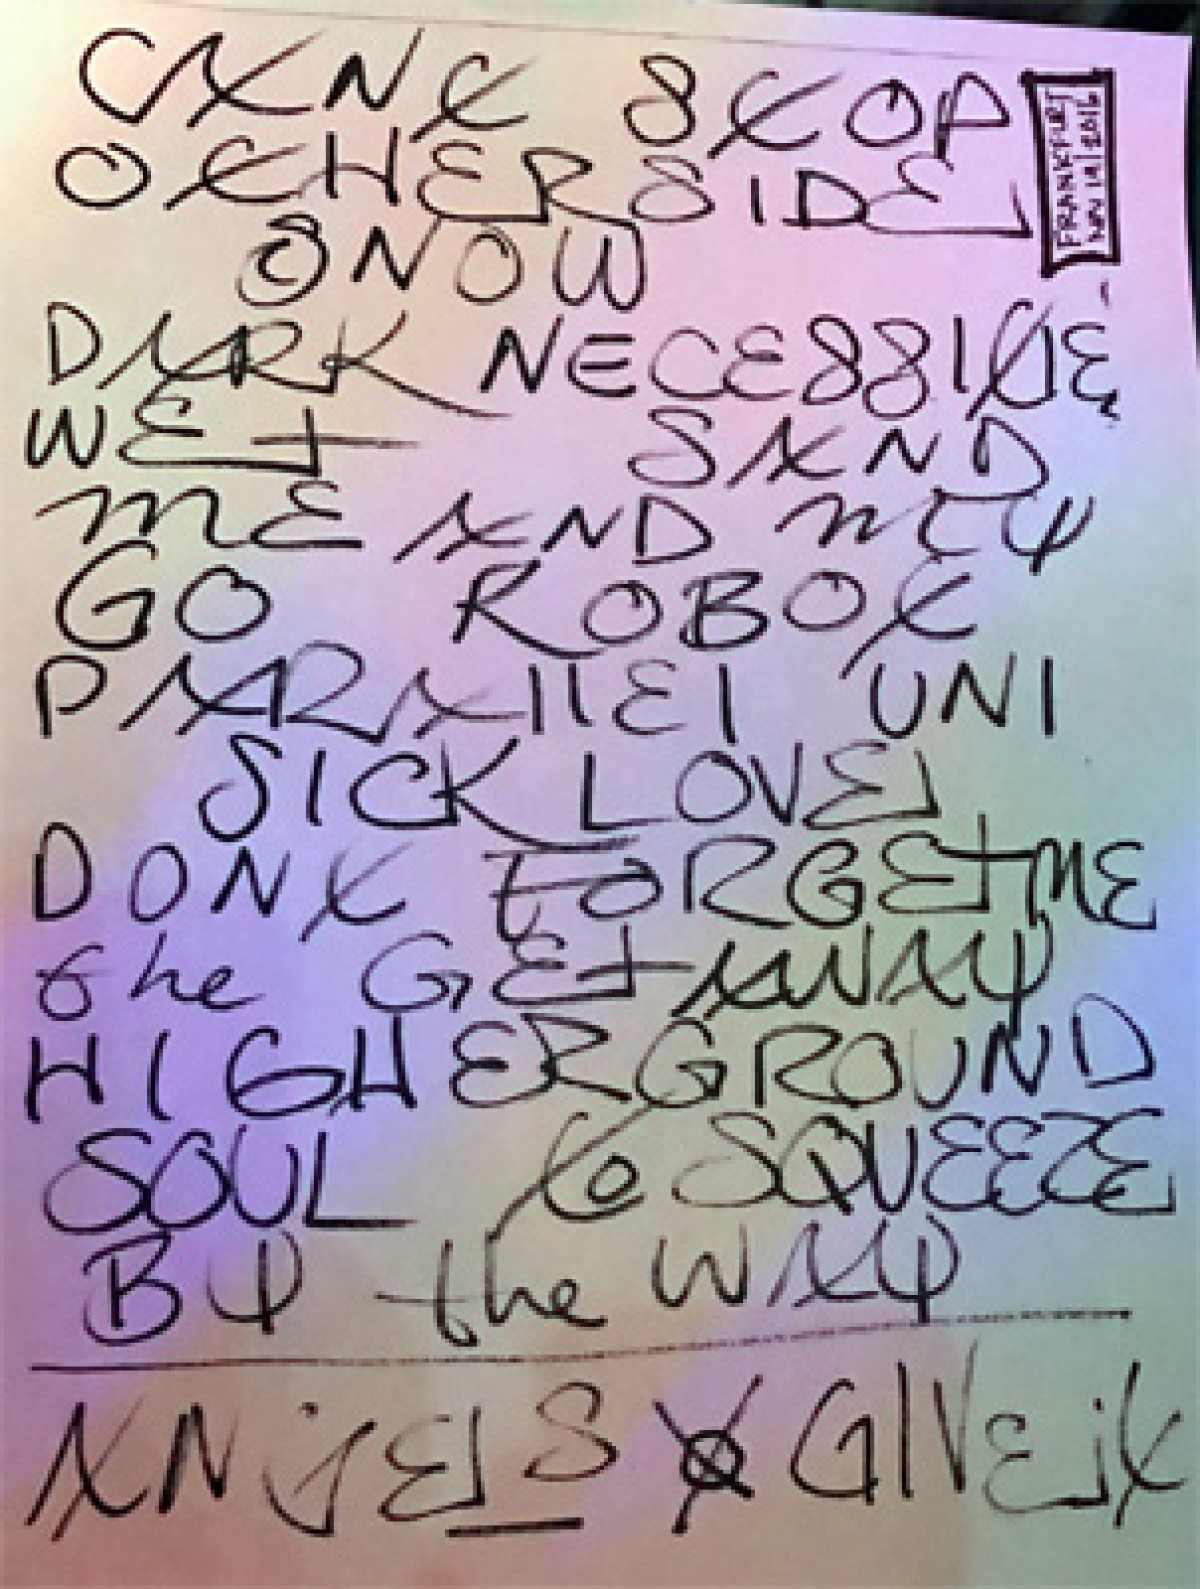 CANT STOP
OTHERSIDE
SNOW
DARK NECESSITIE
WET SAND
ME AND MY
GO ROBOT
PARAllEl UNI
SICK LOVE
DONT FORGET ME
the GETAWAY
HIGHER GROUND
SOUL to SQUEEZE
BY the WAY
ANGELS GIVE it
FRANKFURT
NOV 19/2016